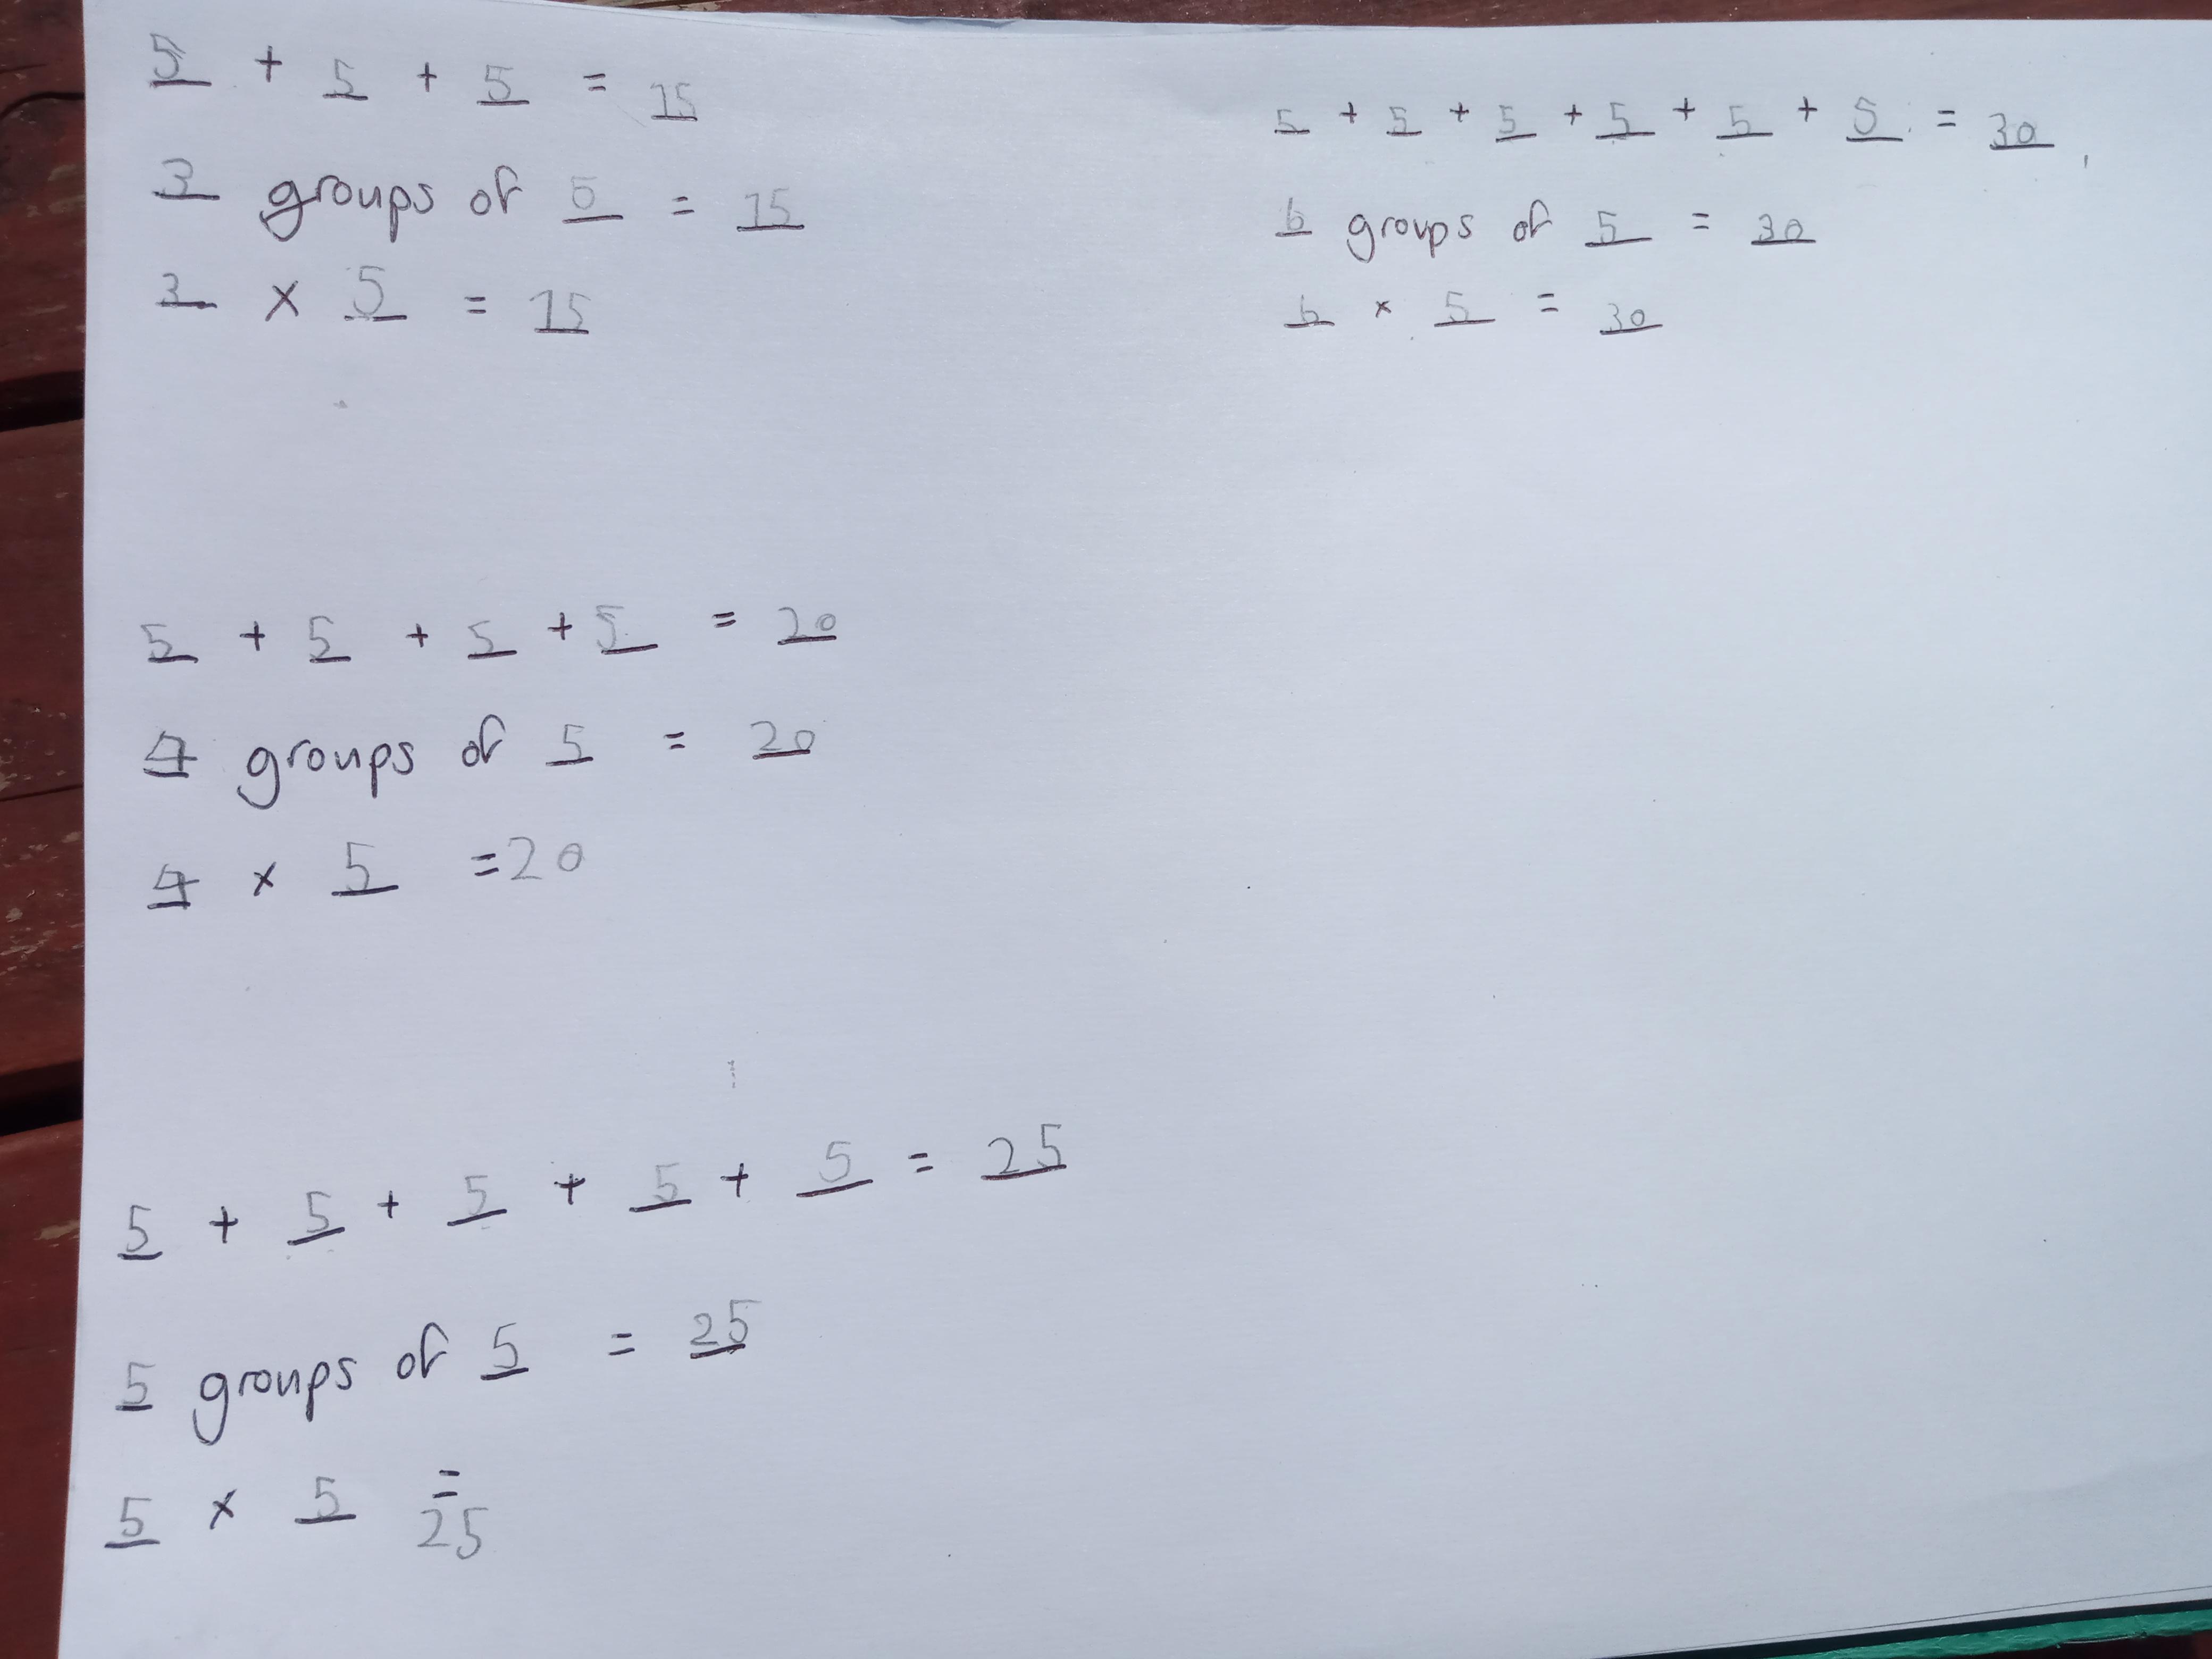 5 + 5 + 5 = 15
3 groups of 5 = 15
3 × 5 = 15
5 + 5 + 5 + 5 = 20
4 groups of 5 = 20
4 × 5 = 20
5 + 5 + 5 + 5 + 5 = 25
5 groups of 5 = 25
5 × 5 = 25
5 + 5 + 5 + 5 + 5 + 5 = 30
6 groups of 5 = 30
6 × 5 = 30